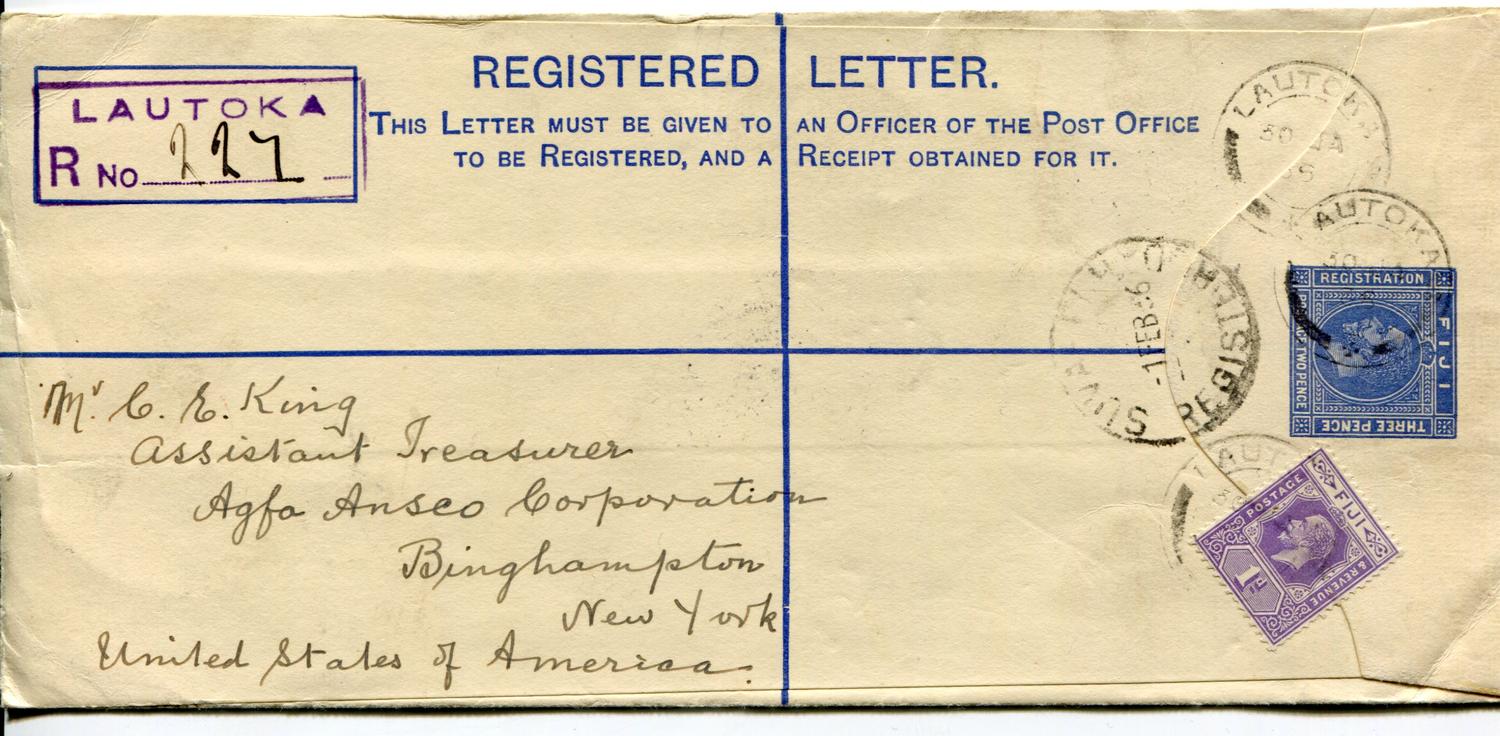 REGISTERED LETTER.
THIS LETTER MUST BE GIVEN TO AN OFFICER OF THE POST OFFICE
TO BE REGISTERED, AND A RECEIPT OBTAINED FOR IT.
LAUTOKA
R No 227
LAUTOKA
30 JA
LAUTOKA
30 JA
SUVA FIJI
-1 FEB 36
REGIST
REGISTRATION
FIJI
THREE PENCE
POSTAGE TWO PENCE
LAUT
30
POSTAGE
FIJI
& REVENUE
1D
Mr C. E. King
Assistant Treasurer
Agfa Ansco Corporation
Binghampton
New York
United States of America.